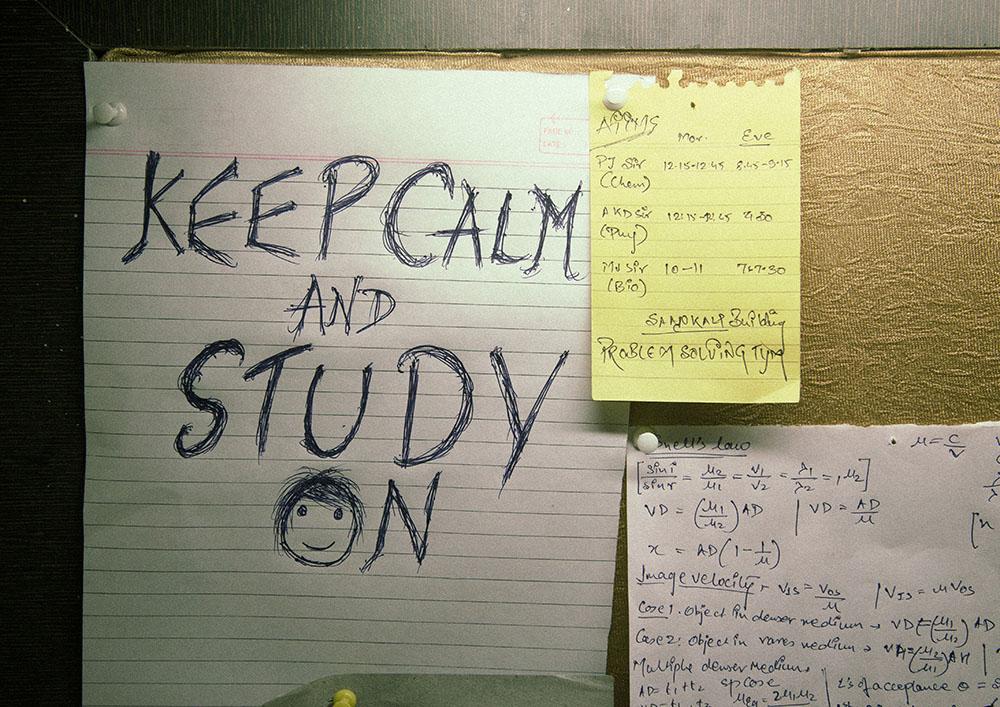 PAGE NO.
DATE:
KEEP CALM
AND
STUDY
ON
Mor. Eve
PJ Sir 12.15-12.45 8.45-9.15
(Chem)
AKD Sir 12.15-12.45
(Phy)
MJ Sir 10-11 7-7.30
(Bio)
Building
PROBLEM SOLVING TYM
Snell's law
[sin i / sin r = μ2/μ1 = v1/v2 = λ1/λ2 = 1μ2]
μ = c/v
VD = (μ1/μ2) AD | VD = AD/μ
x = AD(1 - 1/μ)
Image velocity → VIS = VOS/μ | VIS = μVOS
Case 1. Object in denser medium → VD = (μ1/μ2) AD
Case 2: Object in rarer medium → = (μ2/μ1) AH
Multiple denser medium,
AD = t1 + t2 sp case
μeq = 2μ1μ2
of acceptance θ =